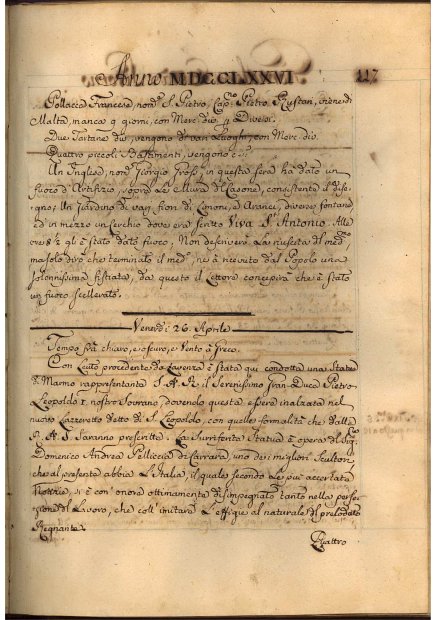 Anno MDCCLXXVI 117
Pollacca Francese, nom.ᵗᵒ S. Pietro, Cap.º Pietro Rustan, viene di
Malta, manca 9 giorni, con Merc. div.
Due Tartane div., vengono di var. Luoghi, con Merc. div.
Quattro piccoli Bastimenti, vengono
Un Inglese, nom.º Giorgio Gross, in questa sera ha dato un
fuoco d'Artifizio, sopra Le Mura di Casone, consistente il dise-
gno; Un Jiardino di var. fiori di Limoni, e Aranci, diverse fontane
ed in mezzo un Cerchio dove era scritto Viva S.ᵗ Antonio. Alle
ore 8½ gl' è stato dato fuoco; Non descriverò La riuscita del med.ᵐᵒ
ma solo dirò che terminato il med.º, ne à ricevuto dal Popolo una
solonnissima fistiata; da questo il Lettore concepirà che è stato
un fuoco scellerato.
Venerdì 26. Aprile
Tempo frà chiaro, e oscuro, e Vento à Greco.
Con Leuto procedente da Lavenza è stata qui condotta una Statua
di Marmo rappresentante S. A. R. il Serenissimo Gran-Duca Pietro
Leopoldo I. nostro Sovrano, dovendo questa essere inalzata nel
nuovo Lazzeretto detto di S. Leopoldo, con quelle formalità che dalla
R. A. S. saranno prescritte. La surriferita Statua è opera del Sig.
Domenico Andrea Pelliccia di Carrara, uno dei migliori Scultori,
che al presente abbia L'Italia, il quale secondo Le più accertate
Notizie, si è con onore ottimamente disimpegnato tanto nella perfe-
zione del Lavoro, che coll'imitare L'effigie al naturale del prelodato
Regnante.
Quattro